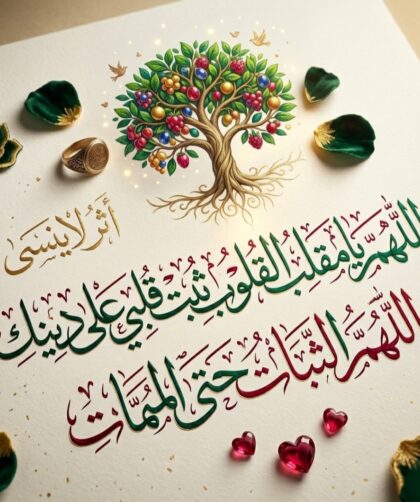 أثر لا ينسى
اللهم يا مقلب القلوب ثبت قلبي على دينك
اللهم الثبات حتى الممات